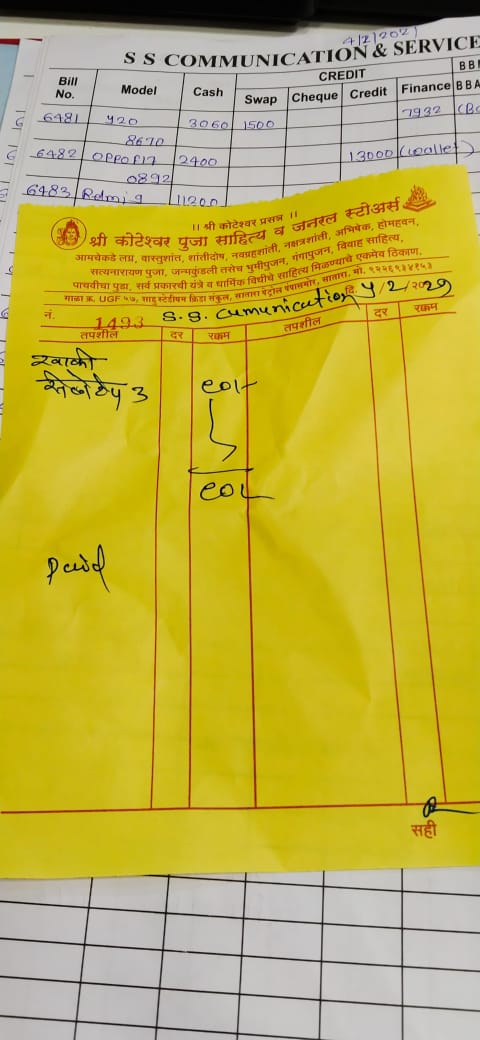 4/2/2021
S S COMMUNICATION & SERVICE
Bill No. Model Cash CREDIT
Swap Cheque Credit Finance
6481 Y20 3060 1500 7932
8670
6482 OPPO F17 2400 13000 (wallet)
0892
6483 Redmi 9 11200
।। श्री कोटेश्वर प्रसन्न ।।
श्री कोटेश्वर पुजा साहित्य व जनरल स्टोअर्स
आमचेकडे लग्न, वास्तुशांत, शांतीदोष, नवग्रहशांती, नक्षत्रशांती, अभिषेक, होमहवन,
सत्यनारायण पुजा, जन्मकुंडली तसेच भुमीपुजन, गंगापुजन, विवाह साहित्य,
पाचवीचा पुडा, सर्व प्रकारची यंत्रे व धार्मिक विधीचे साहित्य मिळण्याचे एकमेव ठिकाण.
गाळा क्र. UGF ५७, साहु स्टेडीयम क्रिडा संकुल, सातारा पेट्रोल पंपासमोर, सातारा. मो. ९२२६९३४१५३
नं. 1493 S.S. Cumunication दि. 4/2/20
तपशील दर रक्कम तपशील दर रक्कम
खाकी
सेलोटेप 3 ९०/-
९०/-
paid
सही